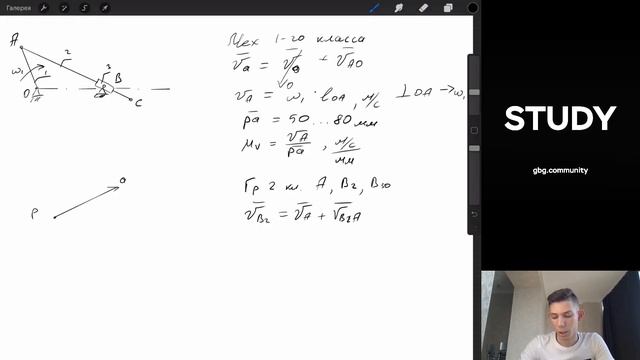 Галерея
A
2
3
B
ω₁
1
O
C
Мех 1-го класса
v̅a = v̅o + v̅AO
0
vA = ω₁ · lOA, м/с ⊥ OA → ω₁
p̅a̅ = 50 ... 80 мм
μv = vA / p̅a̅ , м/с / мм
Гр 2 кл. A, B₂, B₃₀
v̅B₂ = v̅A + v̅B₂A
P
a
STUDY
gbg.community